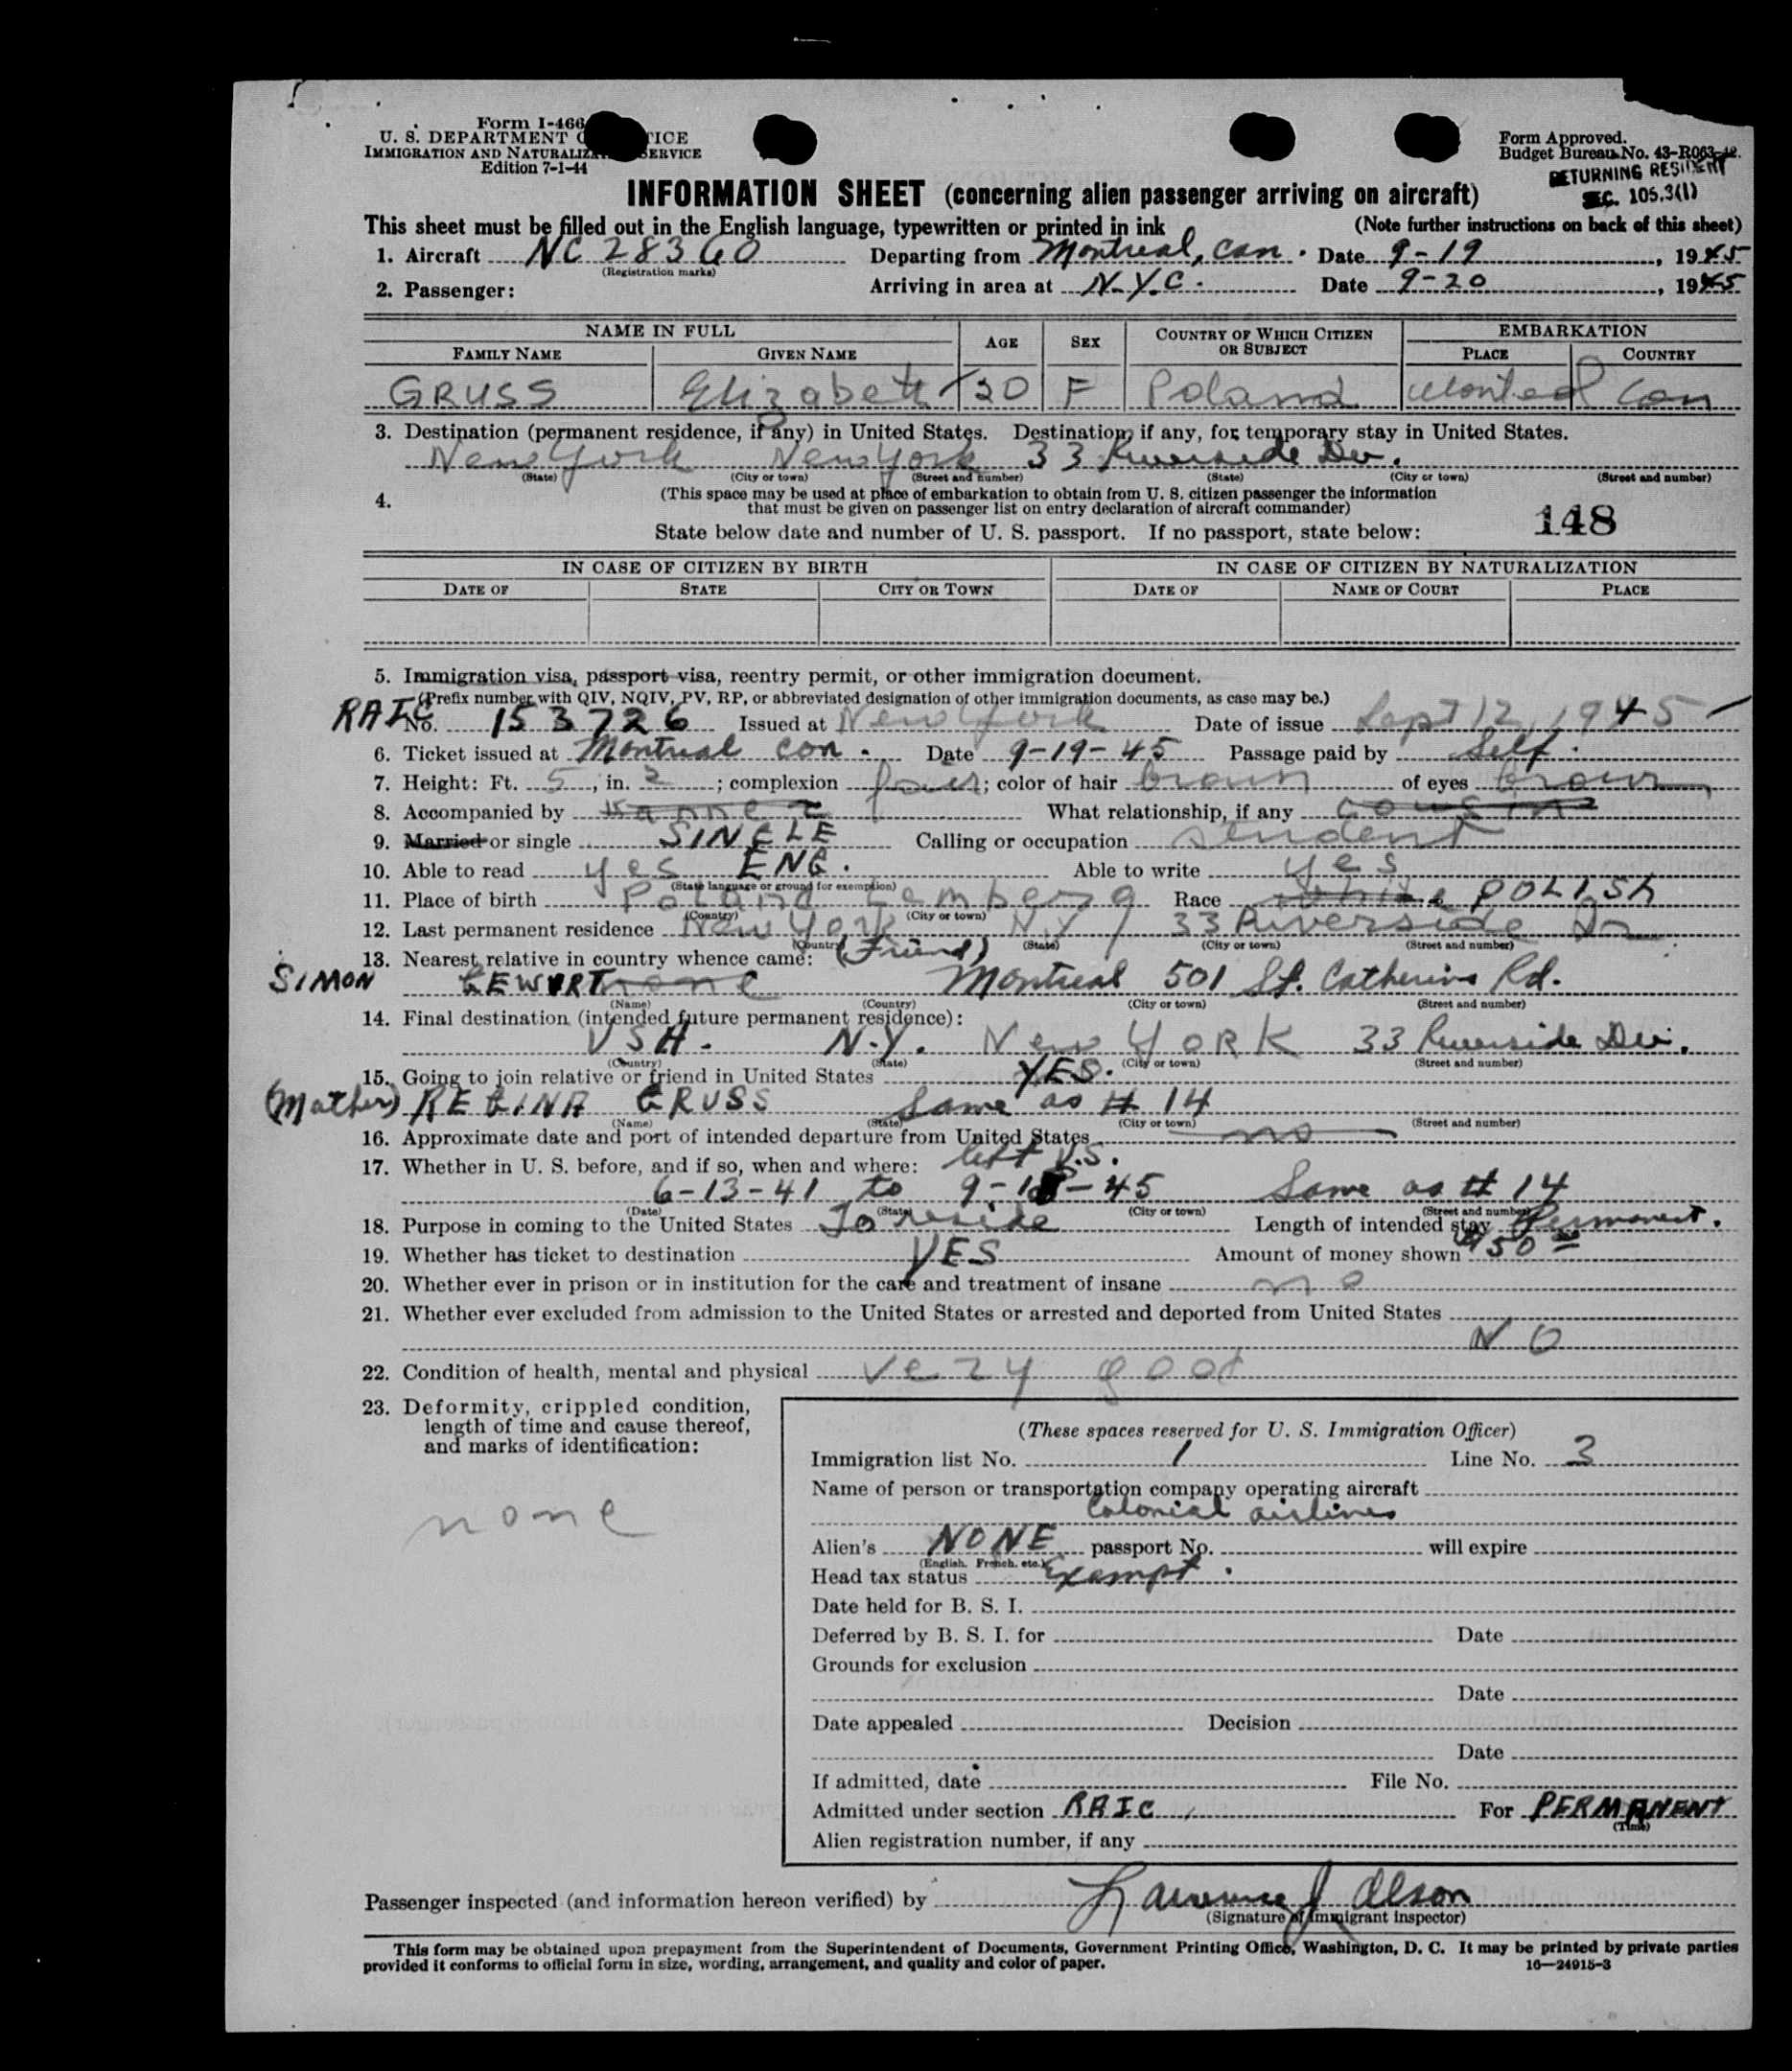 Form I-466
U. S. DEPARTMENT TICE
IMMIGRATION AND NATURALIZA SERVICE
Edition 7-1-44
Form Approved.
Budget Bureau No. 43-R063-42.
RETURNING RESIDENT
SEC. 105.3(1)
INFORMATION SHEET (concerning alien passenger arriving on aircraft)
This sheet must be filled out in the English language, typewritten or printed in ink (Note further instructions on back of this sheet)
1. Aircraft NC 28360 Departing from Montreal, Can. Date 9-19, 1945
(Registration marks)
2. Passenger: Arriving in area at N.Y.C. Date 9-20, 1945
NAME IN FULL AGE SEX COUNTRY OF WHICH CITIZEN OR SUBJECT EMBARKATION
FAMILY NAME GIVEN NAME PLACE COUNTRY
GRUSS Elizabeth 20 F Poland Montreal Can
3. Destination (permanent residence, if any) in United States. Destination, if any, for temporary stay in United States.
New York New York 33 Riverside Dr.
(State) (City or town) (Street and number) (State) (City or town) (Street and number)
4. (This space may be used at place of embarkation to obtain from U. S. citizen passenger the information
that must be given on passenger list on entry declaration of aircraft commander)
148
State below date and number of U. S. passport. If no passport, state below:
IN CASE OF CITIZEN BY BIRTH IN CASE OF CITIZEN BY NATURALIZATION
DATE OF STATE CITY OR TOWN DATE OF NAME OF COURT PLACE
5. Immigration visa, passport visa, reentry permit, or other immigration document.
(Prefix number with QIV, NQIV, PV, RP, or abbreviated designation of other immigration documents, as case may be.)
RAIC No. 153726 Issued at New York Date of issue Sept 12, 1945
6. Ticket issued at Montreal Can. Date 9-19-45 Passage paid by Self.
7. Height: Ft. 5, in. 2; complexion fair; color of hair brown of eyes brown
8. Accompanied by What relationship, if any cousin
9. Married or single SINGLE Calling or occupation student
10. Able to read yes ENG. Able to write yes
(State language or ground for exemption)
11. Place of birth Poland Lemberg Race white POLISH
(Country) (City or town)
12. Last permanent residence New York N.Y. 33 Riverside Dr
(Country) (State) (City or town) (Street and number)
13. Nearest relative in country whence came: (Friend)
SIMON GEWURT none Montreal 501 St. Catherine Rd.
(Name) (Country) (City or town) (Street and number)
14. Final destination (intended future permanent residence):
USA. N.Y. New York 33 Riverside Dr.
(Country) (State) (City or town) (Street and number)
15. Going to join relative or friend in United States YES.
(Mother) REGINA GRUSS Same as # 14
(Name) (State) (City or town) (Street and number)
16. Approximate date and port of intended departure from United States no
17. Whether in U. S. before, and if so, when and where: left U.S.
6-13-41 to 9-18-45 Same as # 14
(Date) (State) (City or town) (Street and number)
18. Purpose in coming to the United States To reside Length of intended stay Permanent.
19. Whether has ticket to destination YES Amount of money shown $50 00
20. Whether ever in prison or in institution for the care and treatment of insane no
21. Whether ever excluded from admission to the United States or arrested and deported from United States
NO
22. Condition of health, mental and physical very good
23. Deformity, crippled condition,
length of time and cause thereof,
and marks of identification:
none
(These spaces reserved for U. S. Immigration Officer)
Immigration list No. 1 Line No. 3
Name of person or transportation company operating aircraft
Colonial airlines
Alien's NONE passport No. will expire
(English, French, etc.)
Head tax status Exempt.
Date held for B. S. I.
Deferred by B. S. I. for Date
Grounds for exclusion
Date
Date appealed Decision
Date
If admitted, date File No.
Admitted under section RAIC For PERMANENT
(Time)
Alien registration number, if any
Passenger inspected (and information hereon verified) by Lawrence J Olson
(Signature of Immigrant inspector)
This form may be obtained upon prepayment from the Superintendent of Documents, Government Printing Office, Washington, D. C. It may be printed by private parties
provided it conforms to official form in size, wording, arrangement, and quality and color of paper. 16—24915-3